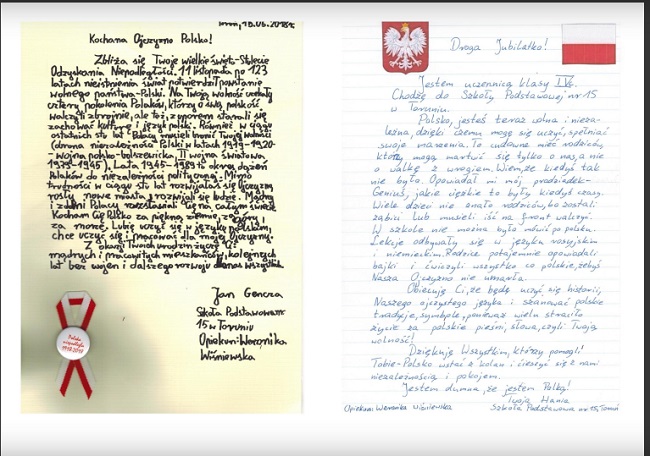 Toruń, 18.06.2018r.
Kochana Ojczyzno Polsko!
Zbliża się Twoje wielkie święto-Stulecie
Odzyskania Niepodległości. 11 listopada po 123
latach nieistnienia świat potwierdził powstanie
wolnego państwa-Polski. Na Twoją wolność czekały
cztery pokolenia Polaków, którzy o swą polskość
walczyli zbrojnie, ale też z uporem starali się
zachować kulturę i język polski. Również w ciągu
ostatnich stu lat Polacy musieli bronić Twojej wolności
(obrona niezależności Polski w latach 1919-1920-
Wojna polsko-bolszewicka, II wojna światowa
1939-1945). Lata 1945-1989 to okres dążeń
Polaków do niezależności politycznej. Mimo
trudności w ciągu stu lat rozwijałaś się Ojczyzno,
rosły nowe miasta, rozwijali się ludzie. Mądrzy
i zdolni Polacy rozsławiali Cię na całym świecie.
Kocham Cię Polsko za piękną ziemię, za góry i
za morze. Lubię uczyć się w języku polskim,
chcę uczyć się i pracować dla mojej Ojczyzny.
Z okazji Twoich urodzin życzę Ci
mądrych i pracowitych mieszkańców, kolejnych
lat bez wojen i dalszego rozwoju dla nas wszystkich.
Jan Gencza
Szkoła Podstawowa nr
15 w Toruniu
Opiekun: Weronika
Wiśniewska
Polska
niepodległa
1918-2018
Droga Jubilatko!
Jestem uczennicą klasy IV
Chodzę do Szkoły Podstawowej nr 15
w Toruniu.
Polsko, jesteś teraz wolna i nieza-
leżna, dzięki czemu mogę się uczyć, spełniać
swoje marzenia. To cudowne mieć rodziców,
którzy mogą martwić się tylko o nas, a nie
o walkę z wrogiem. Wiem, że kiedyś tak
nie było. Opowiadał mi mój pradziadek-
Genuś, jakie ciężkie to były kiedyś czasy.
Wiele dzieci nie znało rodziców, bo zostali
zabici lub musieli iść na front walczyć.
W szkole nie można było mówić po polsku.
Lekcje odbywały się w języku rosyjskim
i niemieckim. Rodzice potajemnie opowiadali
bajki i ćwiczyli wszystko co polskie, żebyś
Nasza Ojczyzno nie umarła.
Obiecuję Ci, że będę uczyć się historii,
Naszego ojczystego języka i szanować polskie
tradycje, symbole, ponieważ wielu straciło
życie za polskie pieśni, słowa, czyli Twoją
wolność!
Dziękuję Wszystkim, którzy pomogli
Tobie-Polsko wstać z kolan i cieszyć się z nami
niezależnością i pokojem.
Jestem dumna, że jestem Polką!
Twoja Hania
Opiekun: Weronika Wiśniewska Szkoła Podstawowa nr 15, Toruń